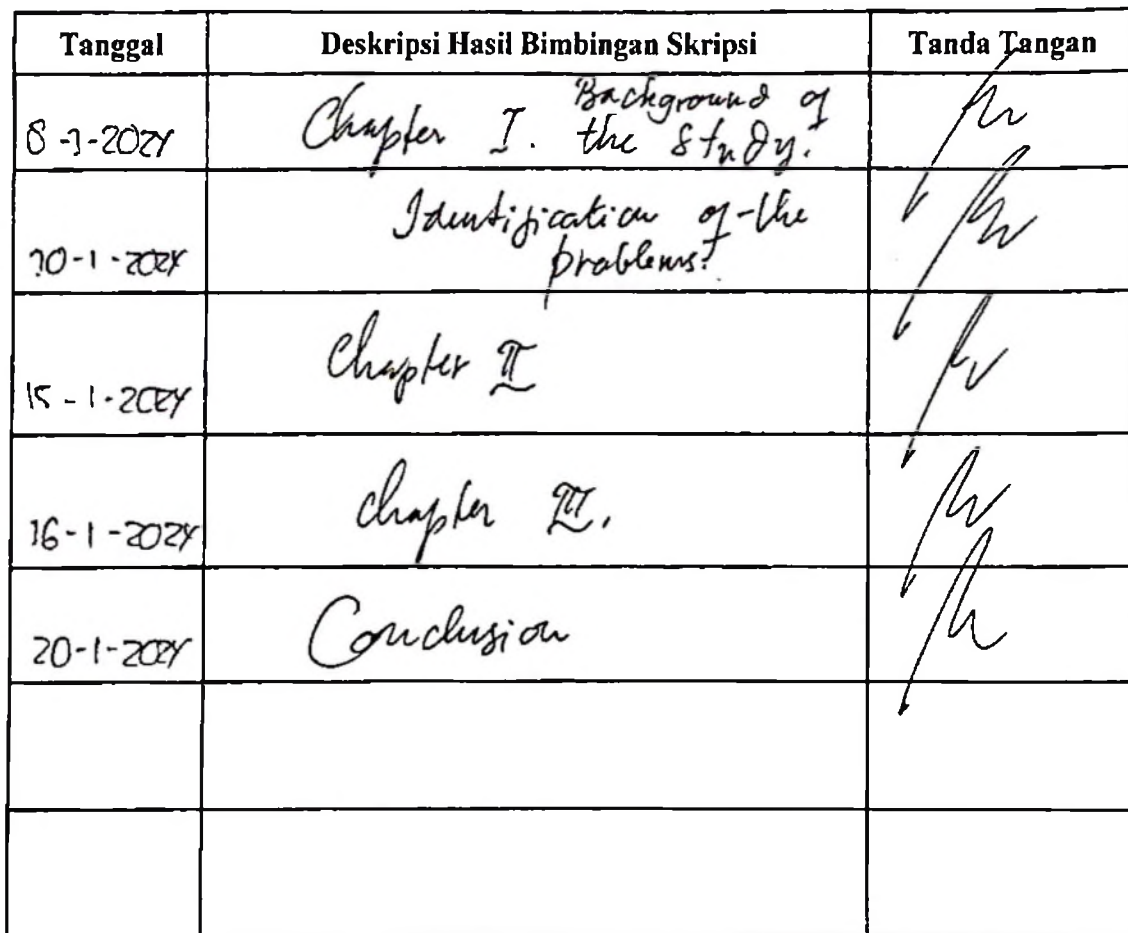 Tanggal Deskripsi Hasil Bimbingan Skripsi Tanda Tangan
8-1-2024 Chapter I. Background of
the study.
Identification of the
10-1-2024 problems.
15-1-2024 Chapter II
16-1-2024 chapter III.
20-1-2024 Conclusion